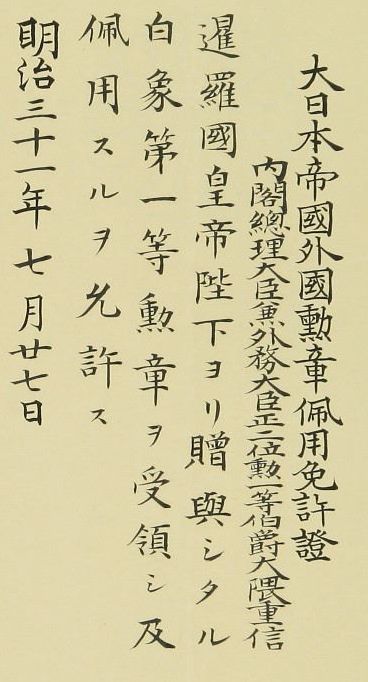 大日本帝國外國勲章佩用免許證
内閣總理大臣兼外務大臣正二位勲一等伯爵大隈重信
暹羅國皇帝陛下ヨリ贈與シタル
白象第一等勲章ヲ受領シ及
佩用スルヲ允許ス
明治三十一年七月廿七日